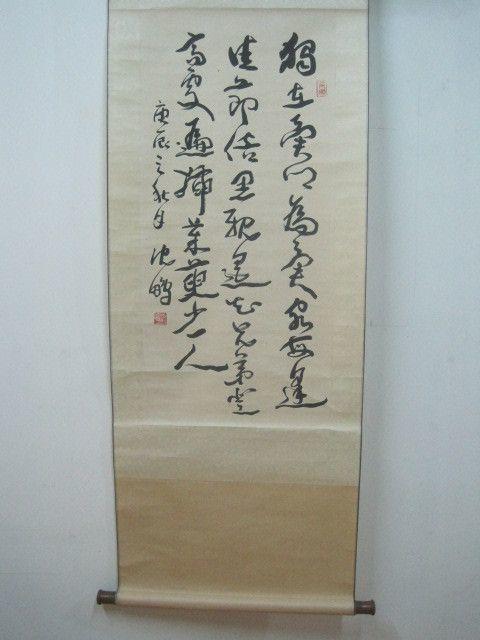 獨在異乡為異客每逢
佳節倍思親遥知兄弟登
高處遍插茱萸少一人
庚辰之秋月 沈鵬